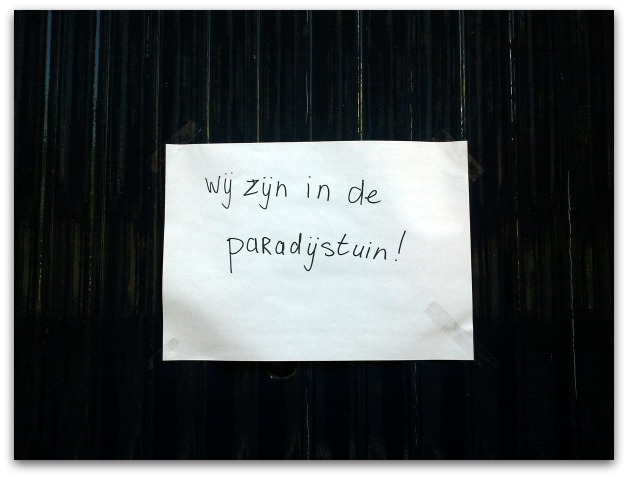 wij zijn in de
paradijstuin!